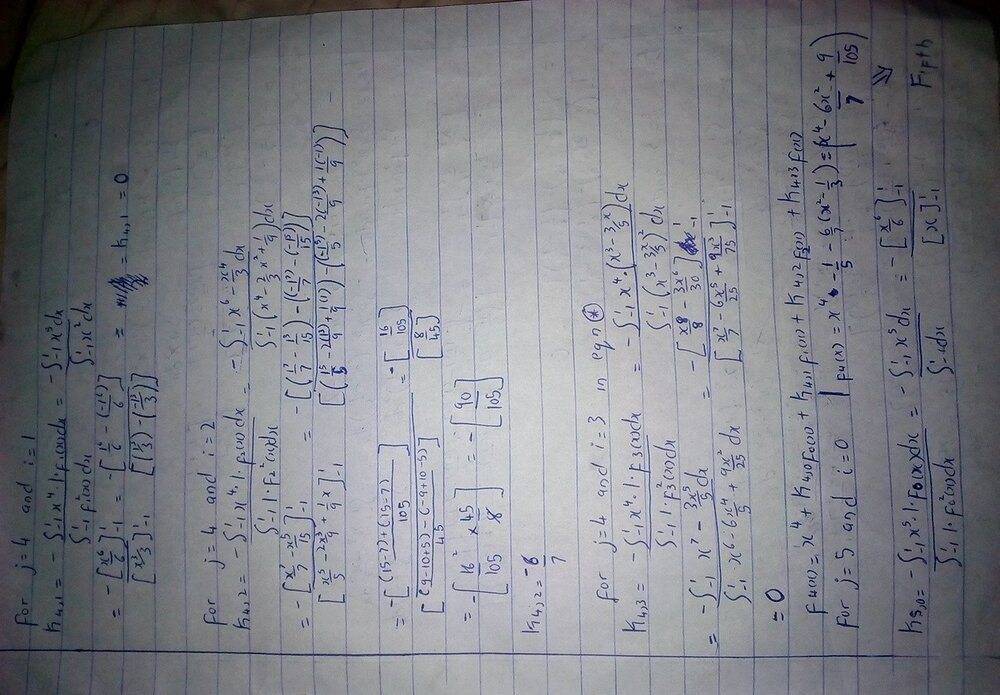 for j=4 and i=1
K4,1 = - ∫¹-1 x⁴ 1·f1(x)dx / ∫¹-1 f1²(x)dx = - ∫¹-1 x⁵dx / ∫¹-1 x²dx
= - [x⁶/6]¹-1 / [x³/3]¹-1 = - [1⁶/6 - (-1⁶)/6] / [(1³/3) - (-1³/3)] = K4,1 = 0
for j=4 and i=2
K4,2 = - ∫¹-1 x⁴·1·f2(x)dx / ∫¹-1 1·f2²(x)dx = - ∫¹-1 x⁶ - x⁴/3 dx / ∫¹-1 (x⁴ - 2/3 x² + 1/9)dx
= - [x⁷/7 - x⁵/15]¹-1 / [x⁵/5 - 2x³/9 + 1/9 x]¹-1 = - ((1⁷/7 - 1⁵/15) - ((-1⁷)/7 - (-1⁵)/15)) / [(1⁵/5 - 2(1³)/9 + 1(1)/9) - ((-1⁵)/5 - 2(-1³)/9 + 1(-1)/9)]
= - [(15-7)+(15-7) / 105] / [(9-10+5)-(-9+10-5) / 45] = - [16/105] / [8/45]
= - [16²/105 × 45/8] = - [90/105]
K4,2 = -6/7
for j=4 and i=3 in eqn ⊛
K4,3 = - ∫¹-1 x⁴·1·f3(x)dx / ∫¹-1 1·f3²(x)dx = - ∫¹-1 x⁴·(x³ - 3x/5)dx / ∫¹-1 (x³ - 3x/5)² dx
= - ∫¹-1 x⁷ - 3x⁵/5 dx / ∫¹-1 x⁶ - 6x⁴/5 + 9x²/25 dx = - [x⁸/8 - 3x⁶/30]¹-1 / [x⁷/7 - 6x⁵/25 + 9x³/75]¹-1
= 0
f4(x) = x⁴ + K4,0 f0(x) + K4,1 f1(x) + K4,2 f2(x) + K4,3 f3(x)
f4(x) = x⁴ - 1/5 - 6/7 (x² - 1/3) = (x⁴ - 6x²/7 + 9/105)
for j=5 and i=0
⇒ Fifth
K5,0 = - ∫¹-1 x⁵·1·f0(x)dx / ∫¹-1 1·f0²(x)dx = - ∫¹-1 x⁵dx / ∫¹-1 1dx = - [x⁶/6]¹-1 / [x]¹-1